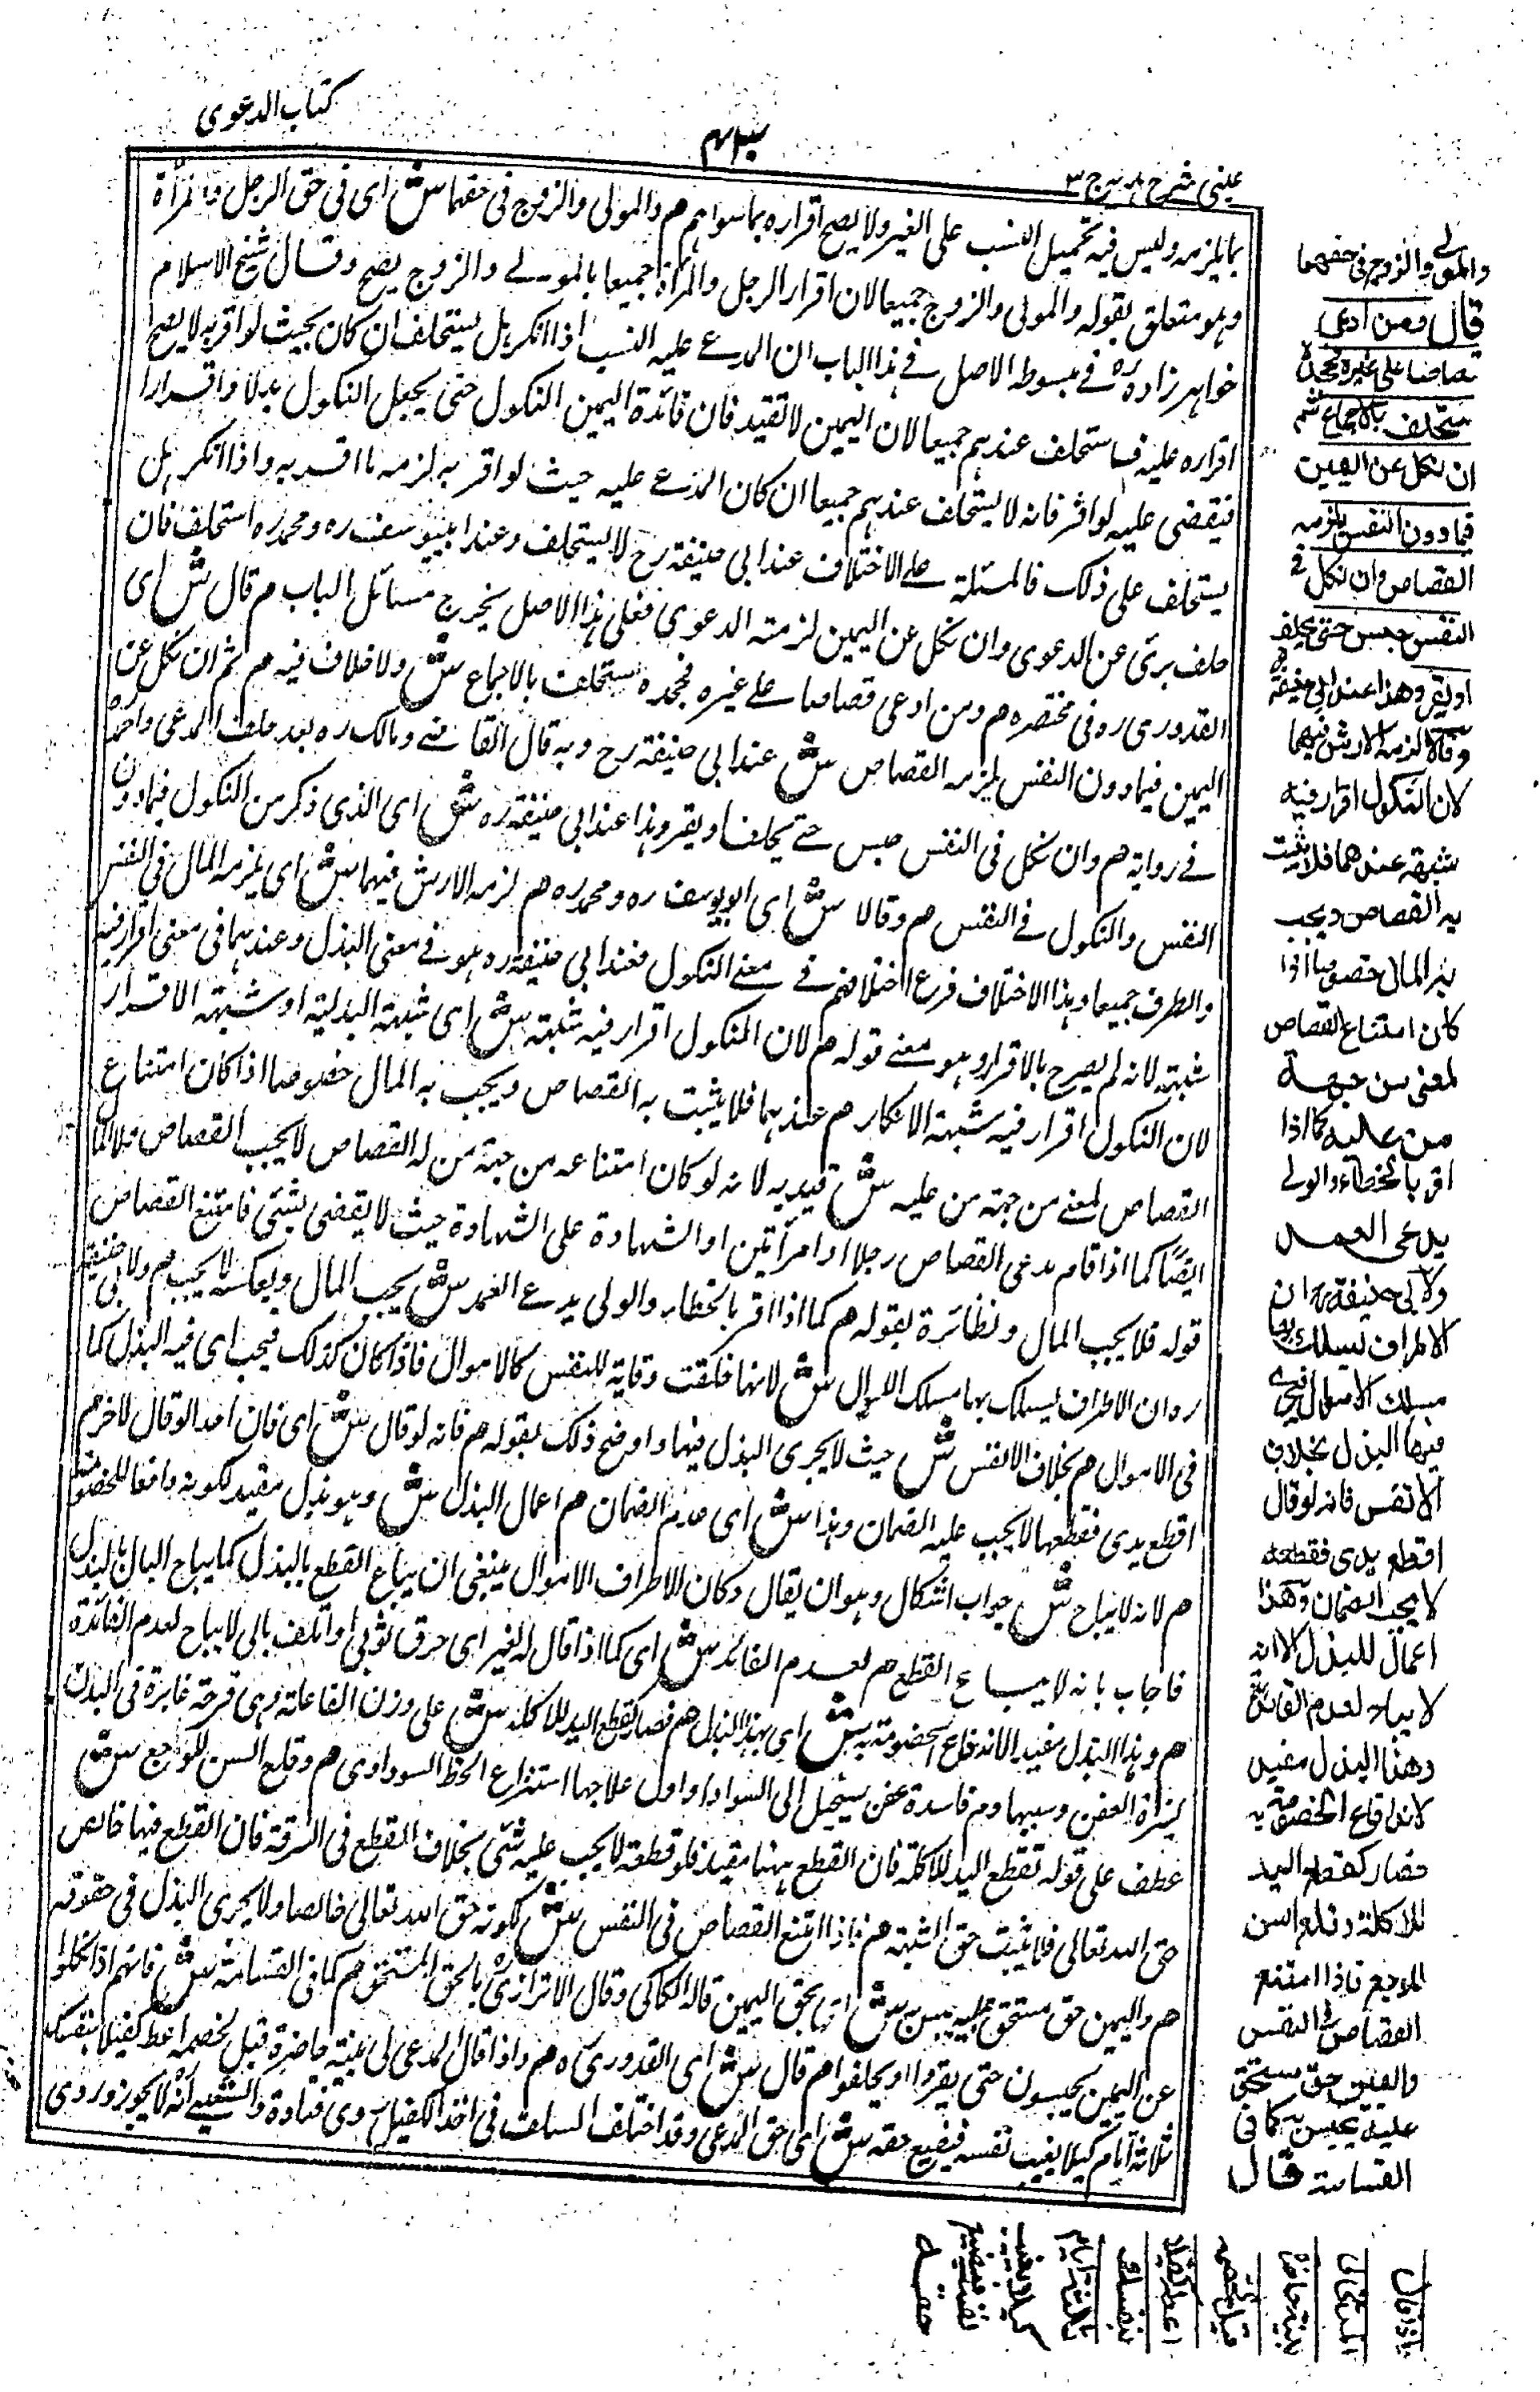 كتاب الدعوى
عینی شرح ہدایہ ج ٣
بما يلزمه وليس فيه تحميل النسب على الغير ولا يصح اقراره بما سواهم م والمولى والزوج فى حقهما ش اى فى حق الرجل والمرأة
وهو متعلق بقوله والمولى والزوج جميعا لان اقرار الرجل والمرأة جميعا بالمولے والزوج يصح وقال شيخ الاسلام
خواهر زاده ره فے مبسوطه الاصل فے هذا الباب ان المدعے عليه النسب اذا انكر هل يستحلف ان كان بحيث لو اقر به لا يصح
اقراره عليه فـ استحلف عندهم جميعا لان اليمين لا تفيد فان فائدة اليمين النكول حتى يجعل النكول بدلا واقرارا
فيقضى عليه لو اقر فانه لا يستحلف عندهم جميعا ان كان المدعے عليه حيث لو اقر به لزمه ما اقر به واذا انكر هل
يستحلف على ذلك فالمسئلة علے الاختلاف عند ابى حنيفة رح لا يستحلف وعند ابييوسف ره ومحمد ره استحلف فان
حلف برئ عن الدعوى وان نكل عن اليمين لزمته الدعوى فعلى هذا الاصل يخرج مسائل الباب م قال ش اى
القدورى ره فى مختصره م ومن ادعى قصاصا علے غيره فجحده يستحلف بالاجماع ش ولا خلاف فيه م ثم ان نكل عن
اليمين فيما دون النفس يلزمه القصاص ش عند ابى حنيفة رح وبه قال القاضے ومالك ره بعد حلف المدعى واحمد ره
فے رواية م وان نكل فى النفس حبس حتے يحلف او يقر وهذا عند ابى حنيفة ره ش اى الذى ذكر من النكول فيما دون
النفس والنكول فے النفس م وقالا ش اى ابو يوسف ره ومحمد ره م لزمه الارش فيهما ش اى يلزمه المال فى النفس
والطرف جميعا وهذا الاختلاف فرع اختلافهم فے معنے النكول فعند ابى حنيفة ره هو فے معنى البذل وعندهما فى معنى اقرار فيه
شبهة لانه لم يصرح بالاقرار وهو معنے قوله م لان النكول اقرار فيه شبهة ش اى شبهة البدلية او شبهة الاقرار
لان النكول اقرار فيه شبهة الانكار م عندهما فلا يثبت به القصاص ويجب به المال خصوصا اذا كان امتناع
القصاص لمعنے من جهة من عليه ش قيد به لانه لو كان امتناعه من جهة من له القصاص لا يجب القصاص فلا المال
ايضًا كما اذا قام مدعى القصاص رجلا او امرأتين او الشهادة على الشهادة حيث لا يقضى بشئ فامتنع القصاص
قوله فلا يجب المال ونظائره بقوله م كما اذا اقر بالخطاء والولى يدعے العمد ش يجب المال وبعكسه لا يجب م ولابى حنيفة
ره ان الاطراف يسلك بها مسلك الاموال ش لانها خلقت وقاية للنفس كالاموال فاذا كان كذلك فيجب اى فيه البذل كما
فى الاموال م بخلاف الانفس ش حيث لا يجرى البذل فيها واوضح ذلك بقوله م فانه لو قال ش اى فان احدا لو قال لآخر م
اقطع يدى فقطعها لا يجب عليه الضمان وهذا ش اى عدم الضمان م اعمال البذل ش وهو بذل مفيد لكونه دافعا للخصومة
م لانه لا يباح ش جواب اشكال وهو ان يقال لو كان الاطراف الاموال ينبغى ان يباع القطع بالبذل كما يباح المال بالبذل
فاجاب بانه لا يباح القطع م لعدم الفائدة ش اى كما اذا قال لغير اى حرق ثوبى او اتلف مالى لا يباح لعدم الفائدة
م وهذا البذل مفيد لاندفاع الخصومة به ش اى بهذا البذل م فصار كقطع اليد للاكلة ش على وزن الفاعلة وهى قرحة غائرة فى البدن
كثيرة العفن وسببها دم فاسدة عفن يستحيل الى السوداء واول علاجها استفراغ الخلط السوداوى م وقلع السن للوجع ش
عطف على قوله تقطع اليد للاكلة فان القطع ههنا مفيد فلو قطعه لا يجب عليه شئ بخلاف القطع فى السرقة فان القطع فيها خالص
حق الله تعالى فلا يثبت حق الشبهة م فاذا امتنع القصاص فى النفس ش لكونه حق الله تعالى خالصا ولا يجرى البذل فى حقوقه
م واليمين حق مستحق عليه يحبس به ش اى بحق اليمين قاله الكاكى وقال الاترازى ره بالحق المستحق م كما فى القسامة ش فانهم اذا نكلوا
عن اليمين يحبسون حتى يقروا او يحلفوا م قال ش اى القدورى ره م واذا قال المدعى لى بينة حاضرة قيل لخصمه اعط كفيلا بنفسك
ثلاثة ايام كيلا يغيب نفسه فيضيع حقه ش اى حق المدعى وقد اختلف السلف فى اخذ الكفيل روى قتادة والشعبے انه لا يجوز وروى
والمولے والزوج فى حقهما
قال ومن ادعى
قصاصا على غيره فجحده
يستحلف بالاجماع ثم
ان نكل عن اليمين
فيما دون النفس يلزمه
القصاص وان نكل فے
النفس حبس حتى يحلف
او يقر وهذا عند ابى حنيفة ره
وقالا لزمه الارش فيهما
لان النكول اقرار فيه
شبهة عندهما فلا يثبت
به القصاص ويجب
به المال خصوصا اذا
كان امتناع القصاص
لمعنى من جهة
من عليه كما اذا
اقر بالخطاء والولے
يدعى العمد
ولابى حنيفة ره ان
الاطراف يسلك بها
مسلك الاموال فيجرى
فيها البذل بخلاف
الانفس فانه لو قال
اقطع يدى فقطعه
لا يجب الضمان وهذا
اعمال للبذل الا انه
لا يباح لعدم الفائدة
وهذا البذل مفيد
لاندفاع الخصومة به
فصار كقطع اليد
للاكلة وقلع السن
للوجع فاذا امتنع
القصاص فى النفس
واليمين حق مستحق
عليه يحبس به كما فى
القسامة قال
واذا قال
المدعى لى
بينة حاضرة
قيل لخصمه
اعط كفيلا
بنفسك
ثلاثة ايام
كيلا يغيب
نفسه فيضيع
حقه